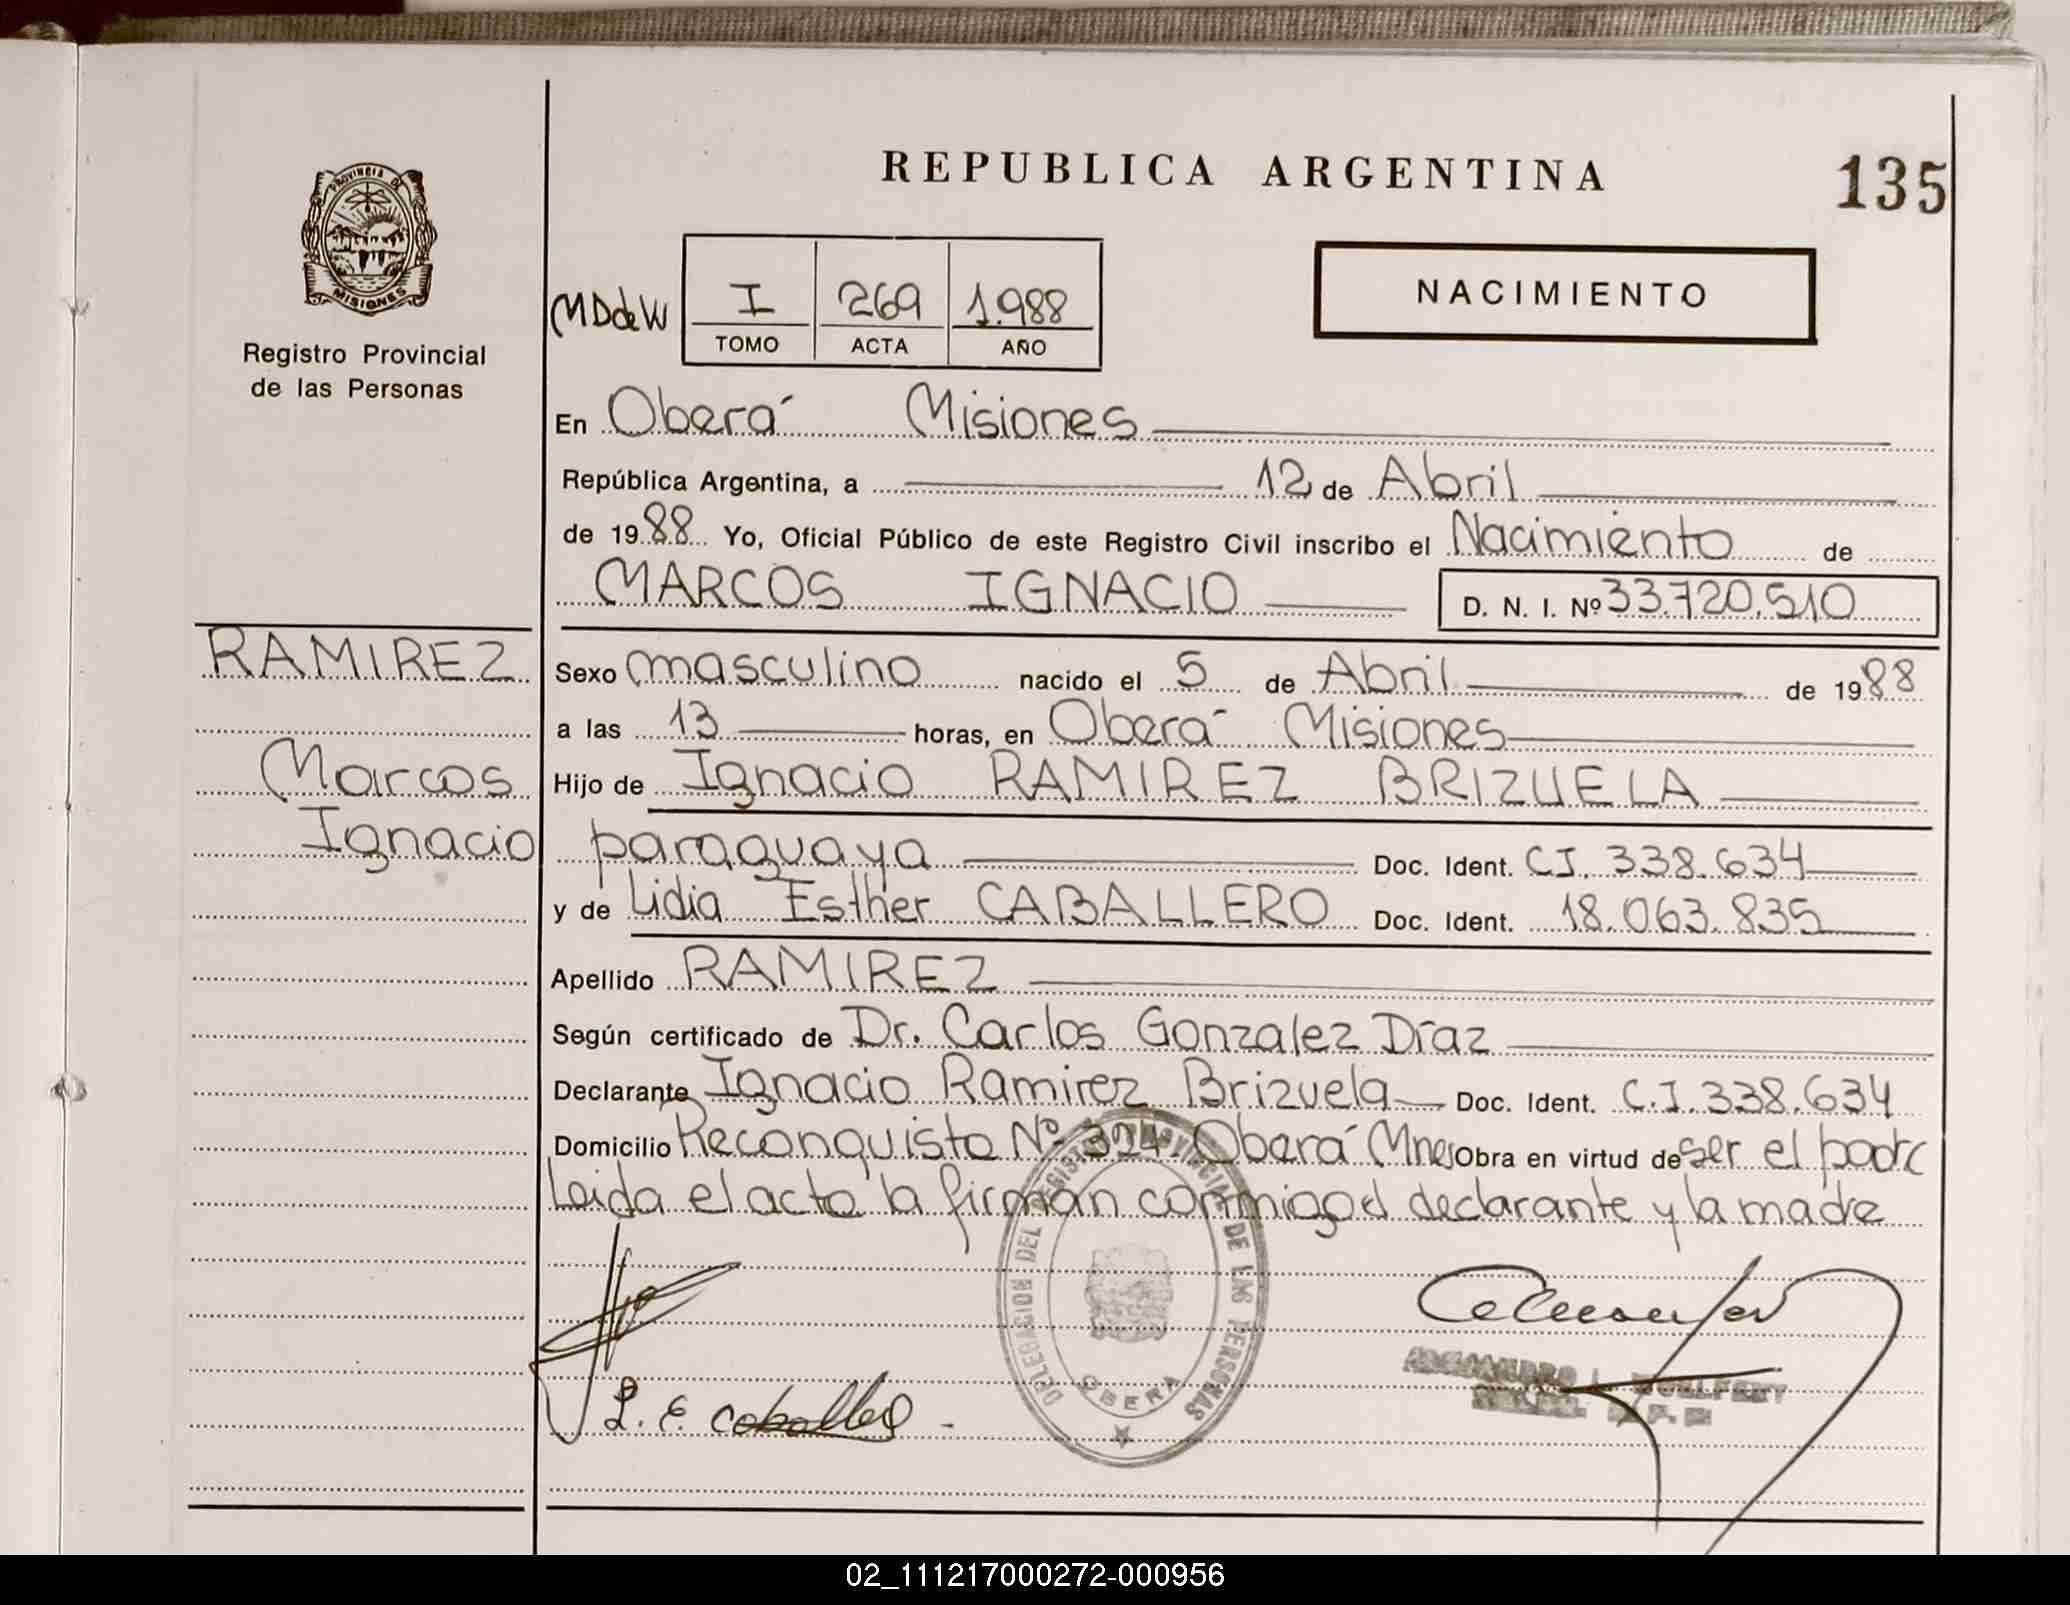 REPUBLICA ARGENTINA
135
PROVINCIA DE
MISIONES
Registro Provincial
de las Personas
MDdeW
I
269
1.988
TOMO
ACTA
AÑO
NACIMIENTO
En Oberá Misiones
República Argentina, a 12 de Abril
de 1988 Yo, Oficial Público de este Registro Civil inscribo el Nacimiento de
MARCOS IGNACIO
D. N. I. Nº 33.720.510
RAMIREZ
Marcos
Ignacio
Sexo masculino nacido el 5 de Abril de 1988
a las 13 horas, en Oberá Misiones
Hijo de Ignacio RAMIREZ BRIZUELA
paraguaya Doc. Ident. CI. 338.634
y de Lidia Esther CABALLERO Doc. Ident. 18.063.835
Apellido RAMIREZ
Según certificado de Dr. Carlos Gonzalez Díaz
Declarante Ignacio Ramirez Brizuela Doc. Ident. C.I. 338.634
Domicilio Reconquista Nº 324 Oberá Mnes Obra en virtud de ser el padre
Leida el acta la firman conmigo el declarante y la madre
DELEGACION DEL REGISTRO PROVINCIAL DE LAS PERSONAS
OBERA
L. E. Caballero
02_111217000272-000956